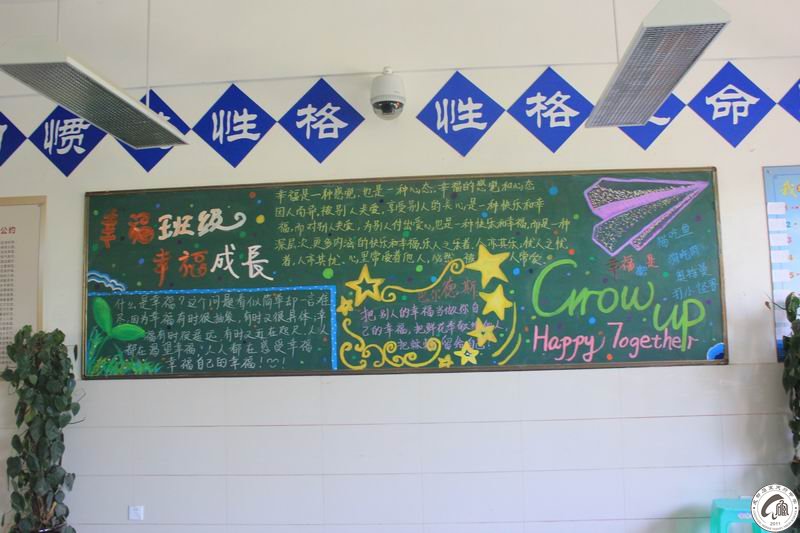 惯
性格
性格
命
公约
幸福班级
幸福成長
幸福是一种感觉,也是一种心态,幸福的感觉和心态
因人而异,被别人关爱,享受别人的关心,是一种快乐和幸
福,而对别人关爱,为别人付出爱心,也是一种快乐和幸福,而是一种
深层次,更多内涵的快乐和幸福,乐人之乐者,人亦其乐,忧人之忧
者,人亦其忧。心里常爱着他人
什么是幸福?这个问题看似简单却一言难
尽,因为幸福有时很抽象,有时又很具体,幸
福有时很遥远,有时又近在咫尺,人人
都在渴望幸福,人人都在感受幸福
幸福自己的幸福!
德斯
把别人的幸福当做你自
己的幸福,把鲜花奉献给他人
把棘刺留给自己!
幸福是
猫吃鱼
狗吃肉
奥特曼
打小怪兽
Grow up
Happy 7ogether
2011